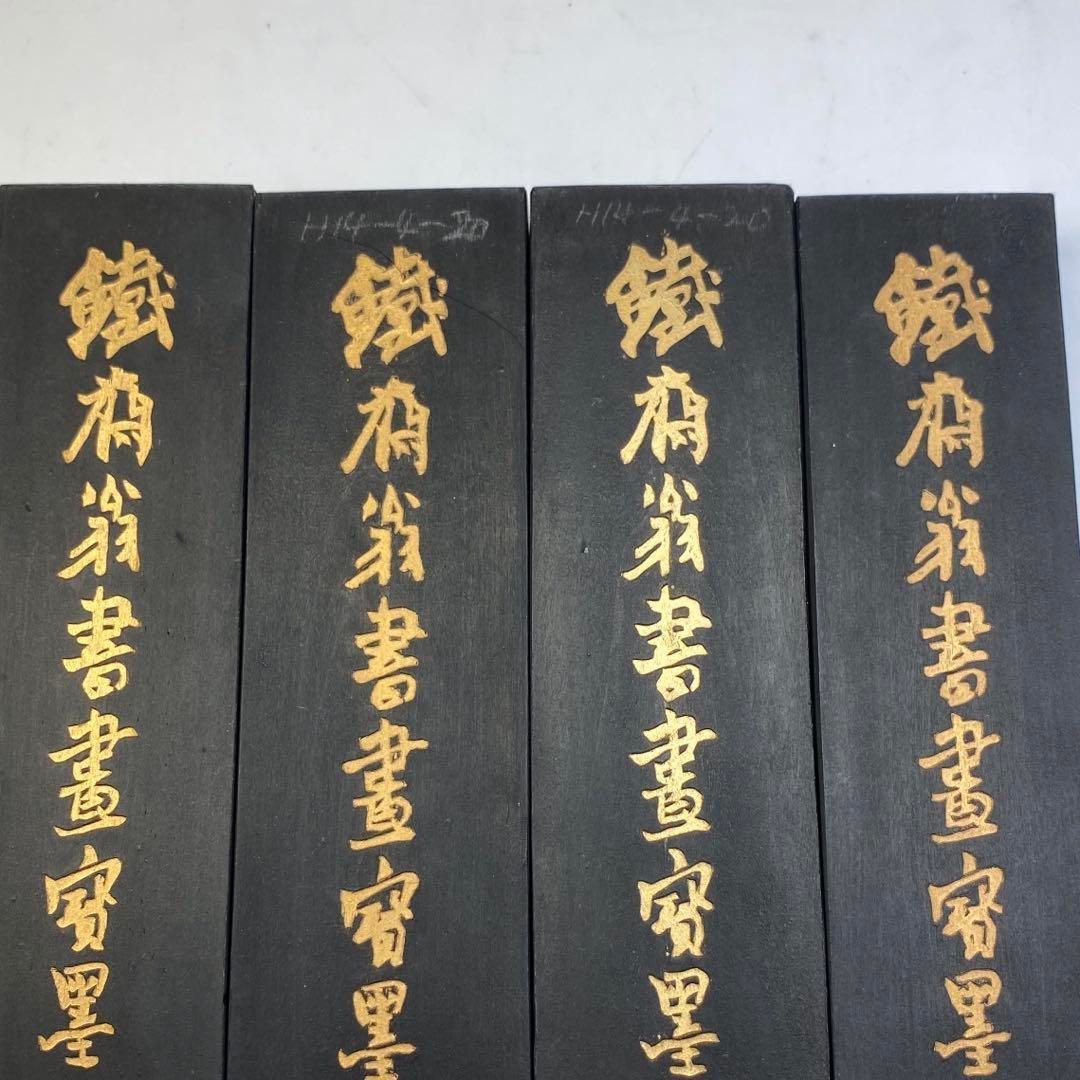 鐵齋翁書畫寶墨
H14-4-20
鐵齋翁書畫寶墨
H14-4-20
鐵齋翁書畫寶墨
鐵齋翁書畫寶墨